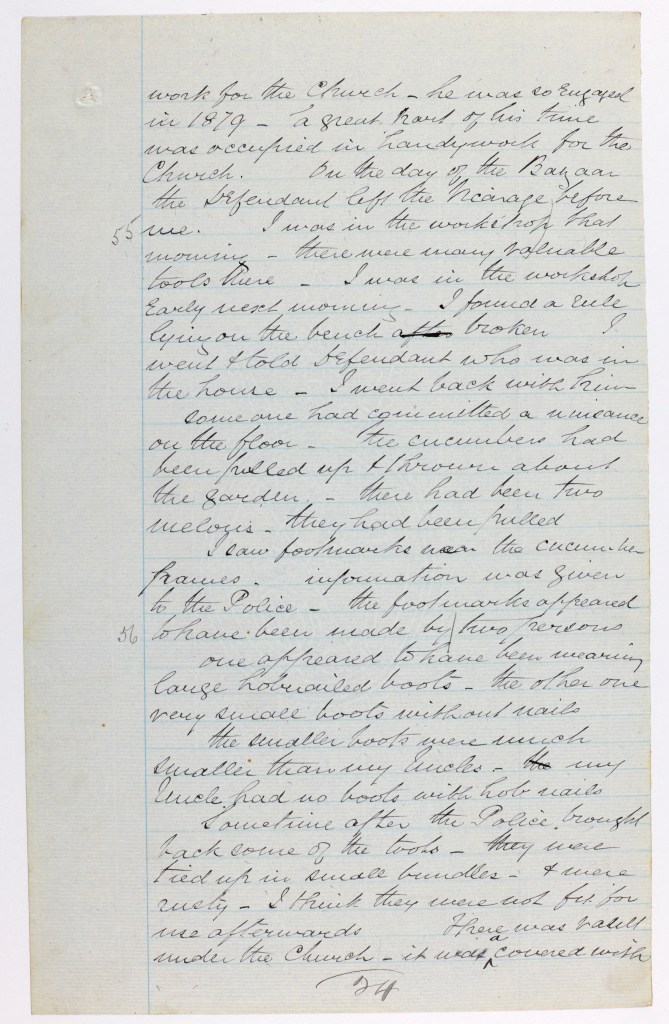 work for the Church - he was so Engaged
in 1879 - a great part of his time
was occupied in handywork for the
Church. On the day of the Bazaar
the Defendant left the Vicarage before
55 me. I was in the workshop that
morning - there were many valuable
tools there - I was in the workshop
Early next morning - I found a rule
lying on the bench after broken I
went & told Defendant who was in
the house - I went back with him
someone had committed a nuisance
on the floor - the cucumbers had
been pulled up & thrown about
the garden - there had been two
melons - they had been pulled
I saw footmarks near the cucumber
frames. information was given
to the Police - the footmarks appeared
56 to have been made by two persons
one appeared to have been wearing
large hobnailed boots - the other one
very small boots without nails
the smaller boots were much
smaller than my Uncles - the my
Uncle had no boots with hob nails
Sometime after the Police brought
back some of the tools - they were
tied up in small bundles - & were
rusty - I think they were not fit for
use afterwards There was a vault
under the Church - it was covered with
34